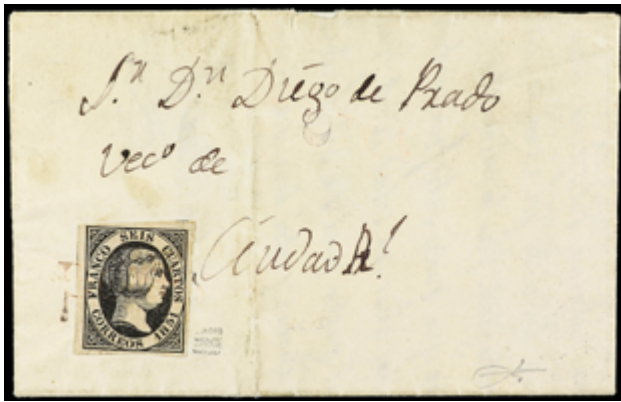 S.ⁿ D.ⁿ Diégo de Prado
Vecº de
Ciudad R.ˡ
FRANCO SEIS CUARTOS
CORREOS 1851